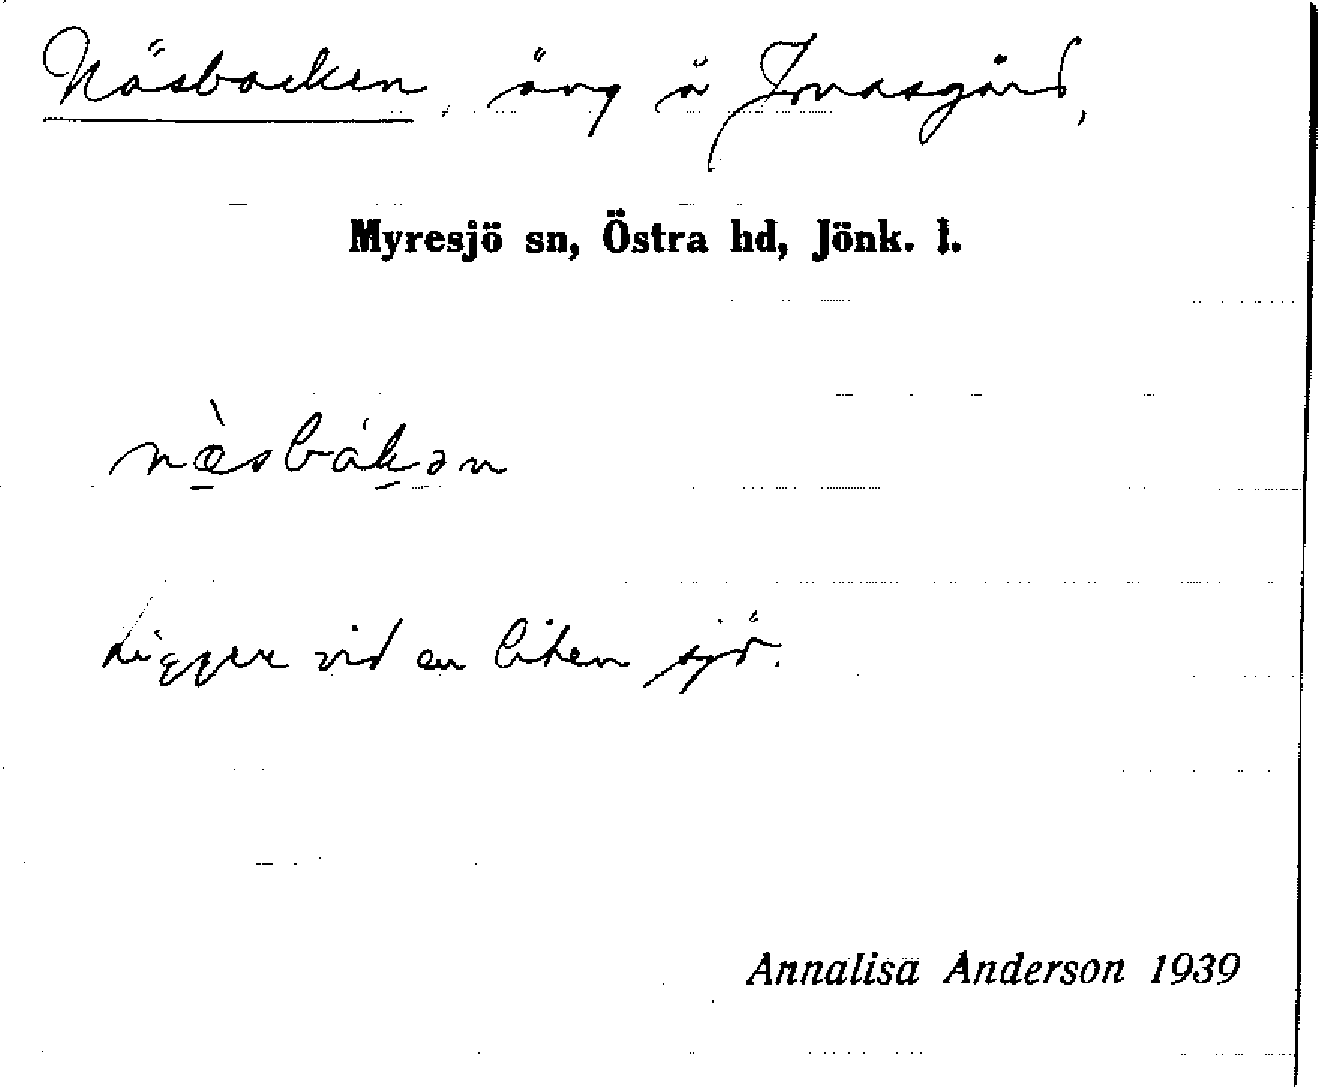 Näsbacken, äng å Jonasgård,
Myresjö sn, Östra hd, Jönk. l.
næ̀sbákən
Ligger vid en liten sjö.
Annalisa Anderson 1939